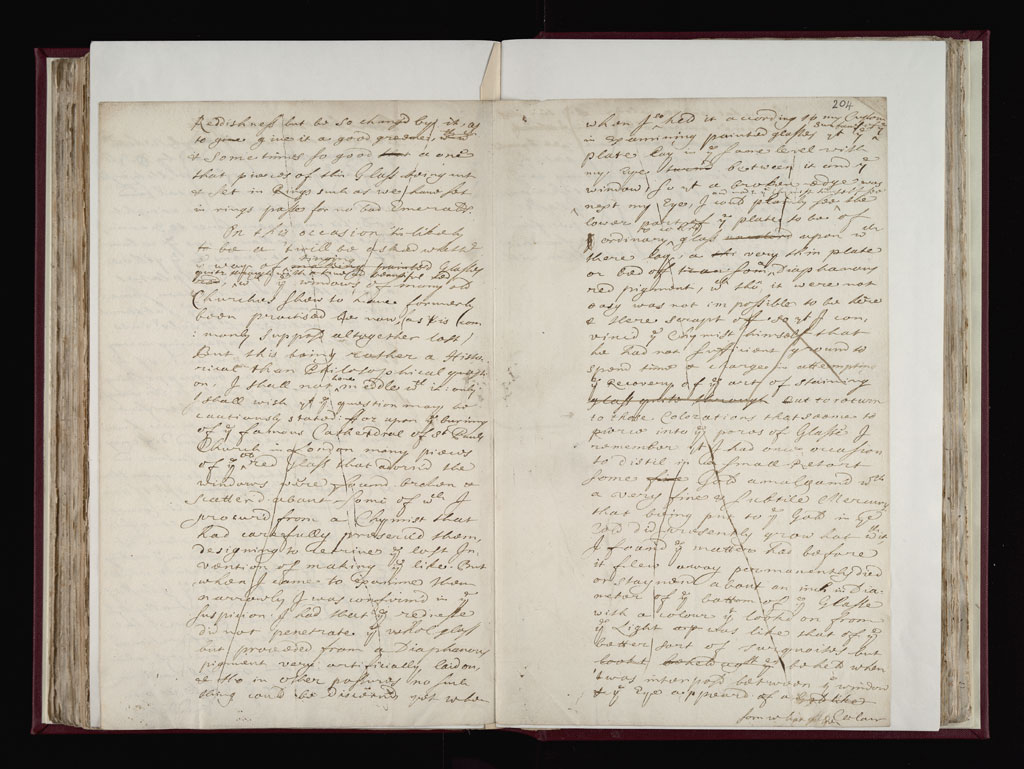 Reddishness but be so changd by it, as
to give it as good greenes,
& sometimes so good a one
that pieces of this Glass being cut
& set in Rings such as we have set
in rings passe for no bad Emeralds.
On this occasion 'tis likely
t' will be askd whether
yᵉ way of Glasses
wᶜʰ yᵉ windows of many old
Churches shew to have formerly
been practised be now, (as 'tis com
:monly suppos'd altogether lost/
But this being rather a Histo-
rical than Philosophical questi-
on, I shall not here meddle wᵗʰ it: only
I shall wish yᵗ yᵉ question may be
cautiously stated: for upon yᵉ burning
of yᵉ famous Cathedral of Sᵗ Pauls
Church in London many pieces
of yᵉ red glass that adorn'd the
windows were found broken &
scatterd about some of wᶜʰ I
procurd from a Chymist that
had carefully preserv'd them,
designing to retrive yᵉ lost In-
vention of making yᵉ like. But
when I came to Examine them
narrowly I was confirmd in yᵉ
suspicion I had that yᵉ rednesse
did not penetrate yᵉ whol glass
but proceeded from a Diaphanous
pigment very artificially laid on,
& tho in other postures no such
thing could be discernd yet when
204
when I held it according to my Custom
in Examining painted glasses yᵗ yᵉ
plate lay in yᵉ same level with
my Eye between it and yᵉ
window, so yᵗ a broken edge was
next my Eye, I could plainly see the
lower part of yᵉ plate to be of
ordinary glass upon wᶜʰ
there lay a very thin plate
or bed of som Diaphanous
red pigment, wᶜʰ tho it were not
easy was not impossible to be here
& there scrapt of: so yᵗ I con
vinced yᵉ Chymist himself that
he had not sufficient ground to
spend time & charges in attempting
yᵉ Recovery of yᵉ art of staining
glass quite through But to return
to those Colorations that seemes to
pierce into yᵉ pores of Glasse I
remember yᵗ I had once occasion
to distil in a small Retort
some Gold amalgamd wᵗʰ
a very fine & subtile Mercury
that being put to yᵉ Gold in
did presently grow hot wᵗʰ it
I found yᵉ matter had before
it flew away permanently died
or staynd about an inch in Dia:
meter of yᵉ bottom of yᵉ Glasse
with a colour yᵗ lookd on from
yᵉ Light was like that of yᵉ
better sort of turquoises, but
beheld when
'twas interposd between yᵉ window
& yᵉ Eye appeard of a
somwhat Colour